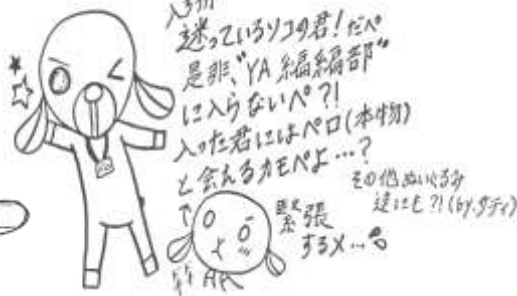 迷っているソコの君！だペ
是非、"YA編編部"
に入らないペ？！
入った君にはペロ（本物）
と会えるカモペよ…？
その他ぬいぐるみ
達にも？！（by.タティ）
緊張
するメ…